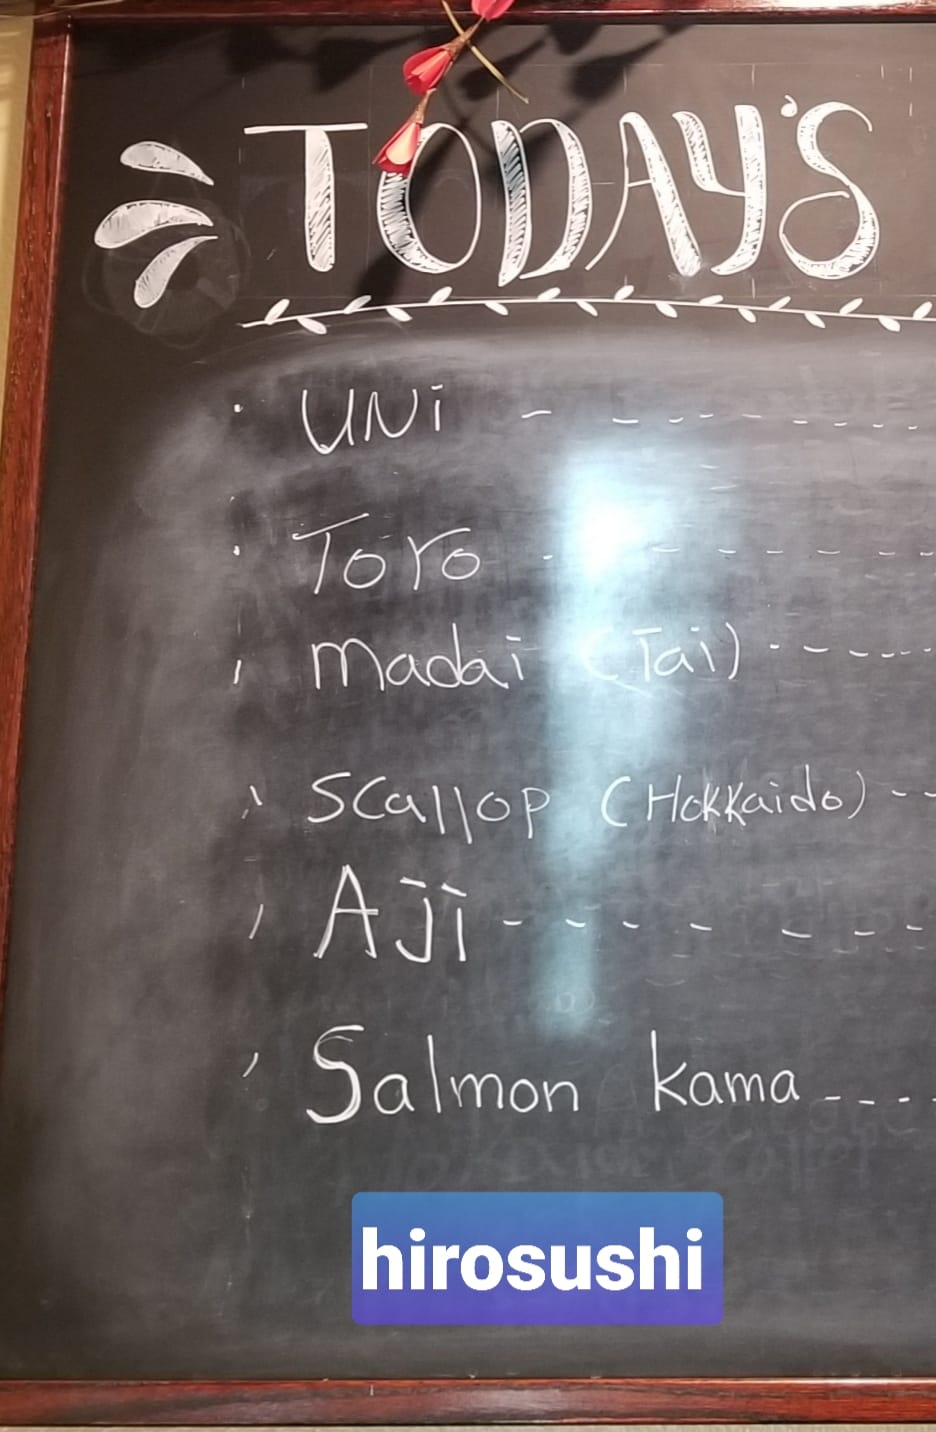 TODAY'S
· UNi - - - - - - - -
· Toro - - - - - - -
· Madai (Tai) - - - - -
· Scallop (Hokkaido) - -
· Aji - - - - - - -
· Salmon kama - - - -
hirosushi